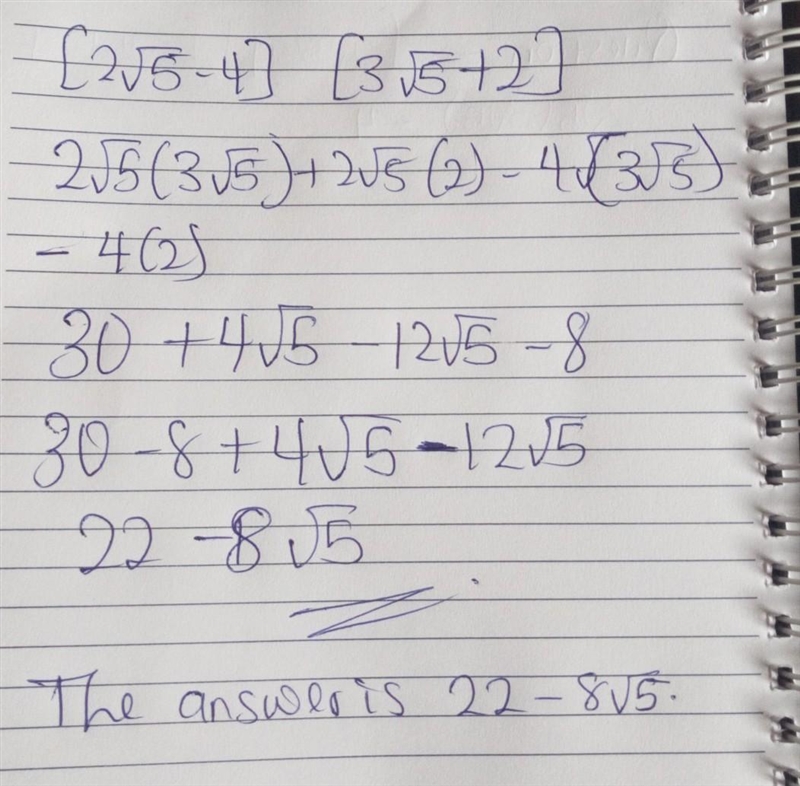 [2√5-4] [3√5+2]
2√5(3√5)+2√5(2)-4(3√5)
- 4(2)
30 +4√5 -12√5 -8
30 -8 +4√5 -12√5
22 -8√5
The answer is 22-8√5.